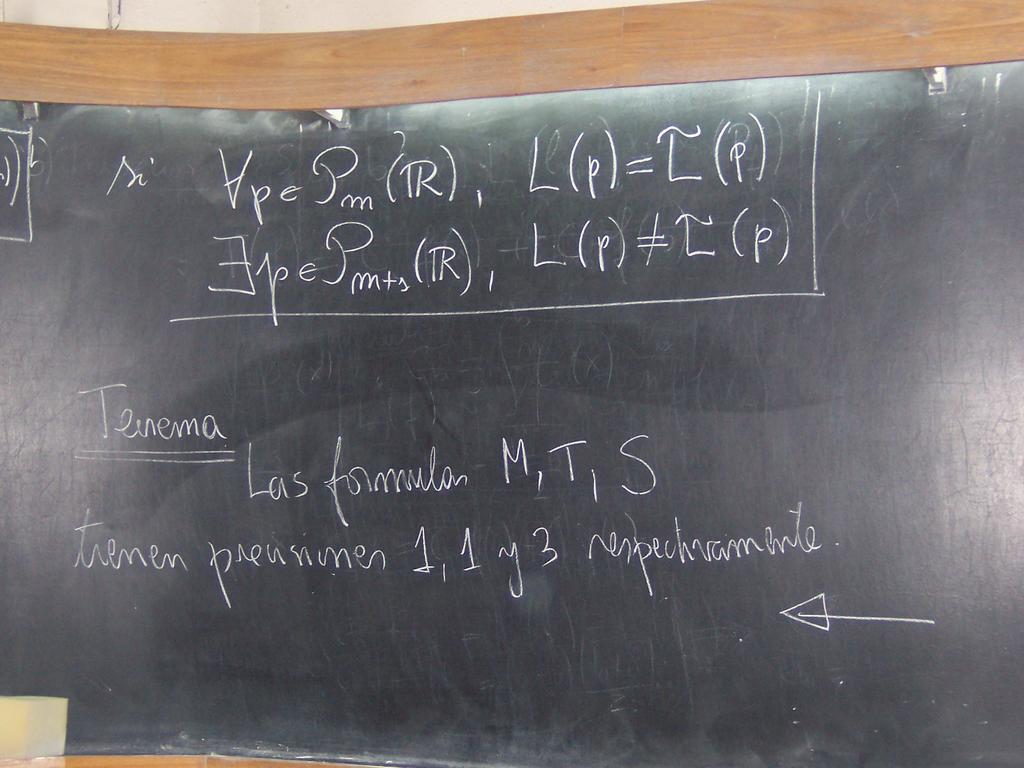 si ∀p∈P_m(ℝ), L(p)=L̃(p)
∃p∈P_{m+1}(ℝ), L(p)≠L̃(p)
Teorema
Las formulas M, T, S
tienen precisiones 1, 1 y 3 respectivamente.